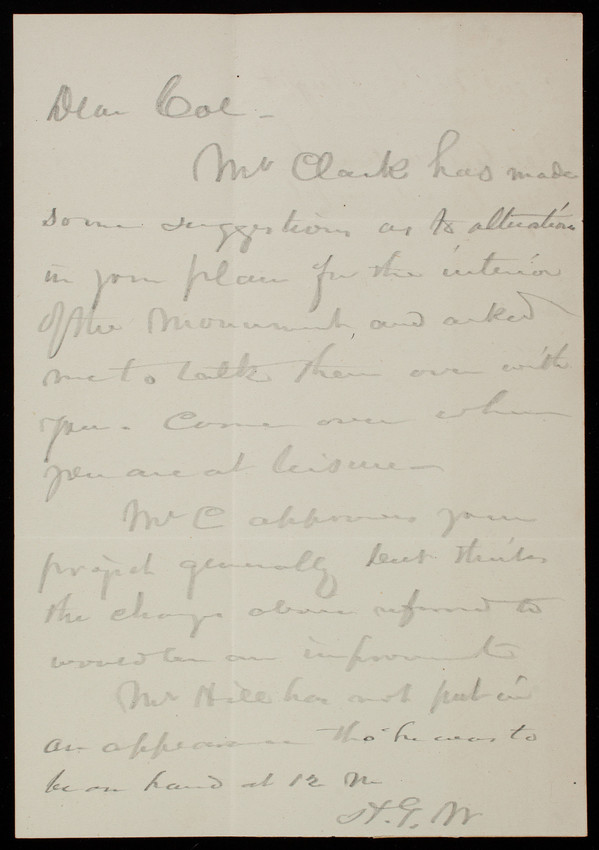 Dear Col -
Mr Clark has made
some suggestions as to alterations
in your plan for the interior
of the Monument, and asked
me to talk them over with
you. Come over when
you are at leisure -
Mr C approves your
project generally but thinks
the change above referred to
would be an improvement
Mr Hill has not put in
an appearance tho' he was to
be on hand at 12 M
H.G.W